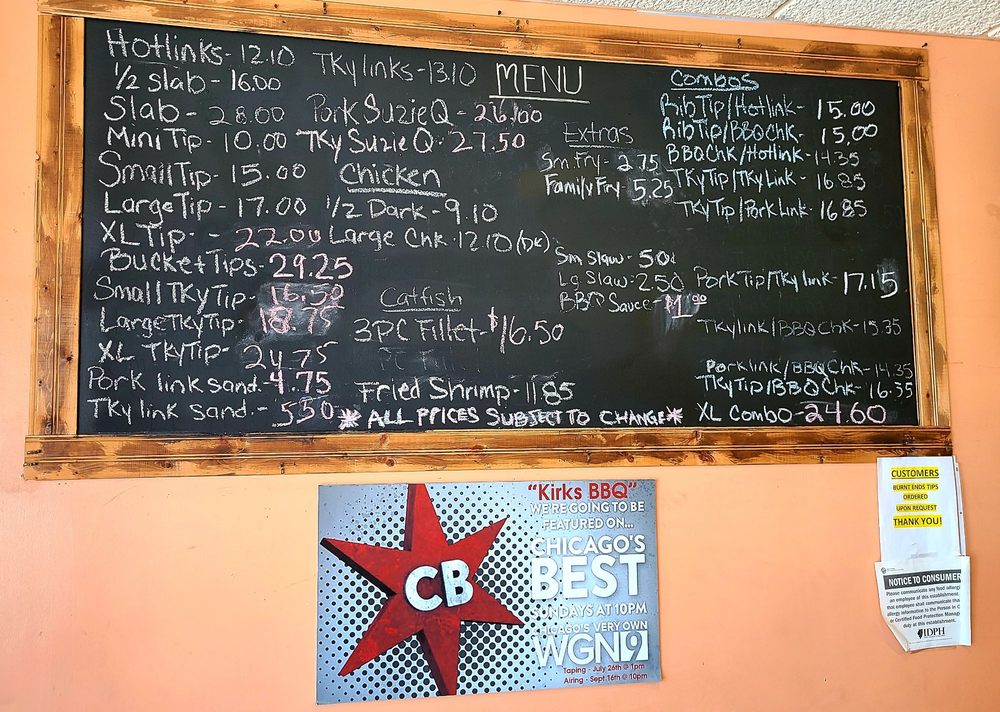 MENU
Hotlinks - 12.10
1/2 Slab - 16.00
Slab - 28.00
Mini Tip - 10.00
Small Tip - 15.00
Large Tip - 17.00
XL Tip - - 22.00
Bucket Tips - 29.25
Small TKy Tip - 16.50
Large TKy Tip - 18.75
XL TKy Tip - 24.75
Pork link sand. - 4.75
TKy link sand. - 5.50
TKy links - 13.10
Pork Suzie Q - 26.00
TKy Suzie Q - 27.50
Chicken
1/2 Dark - 9.10
Large Chk - 12.10 (DK)
Catfish
3PC Fillet - $16.50
Fried Shrimp - 11.85
* ALL PRICES SUBJECT TO CHANGE *
Extras
Sm Fry - 2.75
Family Fry 5.25
Sm Slaw - 50¢
Lg Slaw - 2.50
BBQ Sauce - $1.00
Combos
Rib Tip/Hotlink - 15.00
Rib Tip/BBQ Chk - 15.00
BBQ Chk/Hotlink - 14.35
TKy Tip/TKy Link - 16.85
TKy Tip/Pork Link - 16.85
Pork Tip/TKy link - 17.15
TKy link/BBQ Chk - 15.35
Pork link/BBQ Chk - 14.35
TKy Tip/BBQ Chk - 16.35
XL Combo - 24.60
CB
"Kirks BBQ"
WE'RE GOING TO BE
FEATURED ON...
CHICAGO'S
BEST
SUNDAYS AT 10PM
CHICAGO'S VERY OWN
WGN9
Taping - July 26th @ 1pm
Airing - Sept 16th @ 10pm
CUSTOMERS
BURNT ENDS TIPS
ORDERED
UPON REQUEST
THANK YOU!
NOTICE TO CONSUMER
Please communicate any food allergy
an employee of this establishment.
that employee shall communicate tha
allergy information to the Person in C
or Certified Food Protection Manager
duty at this establishment.
IDPH